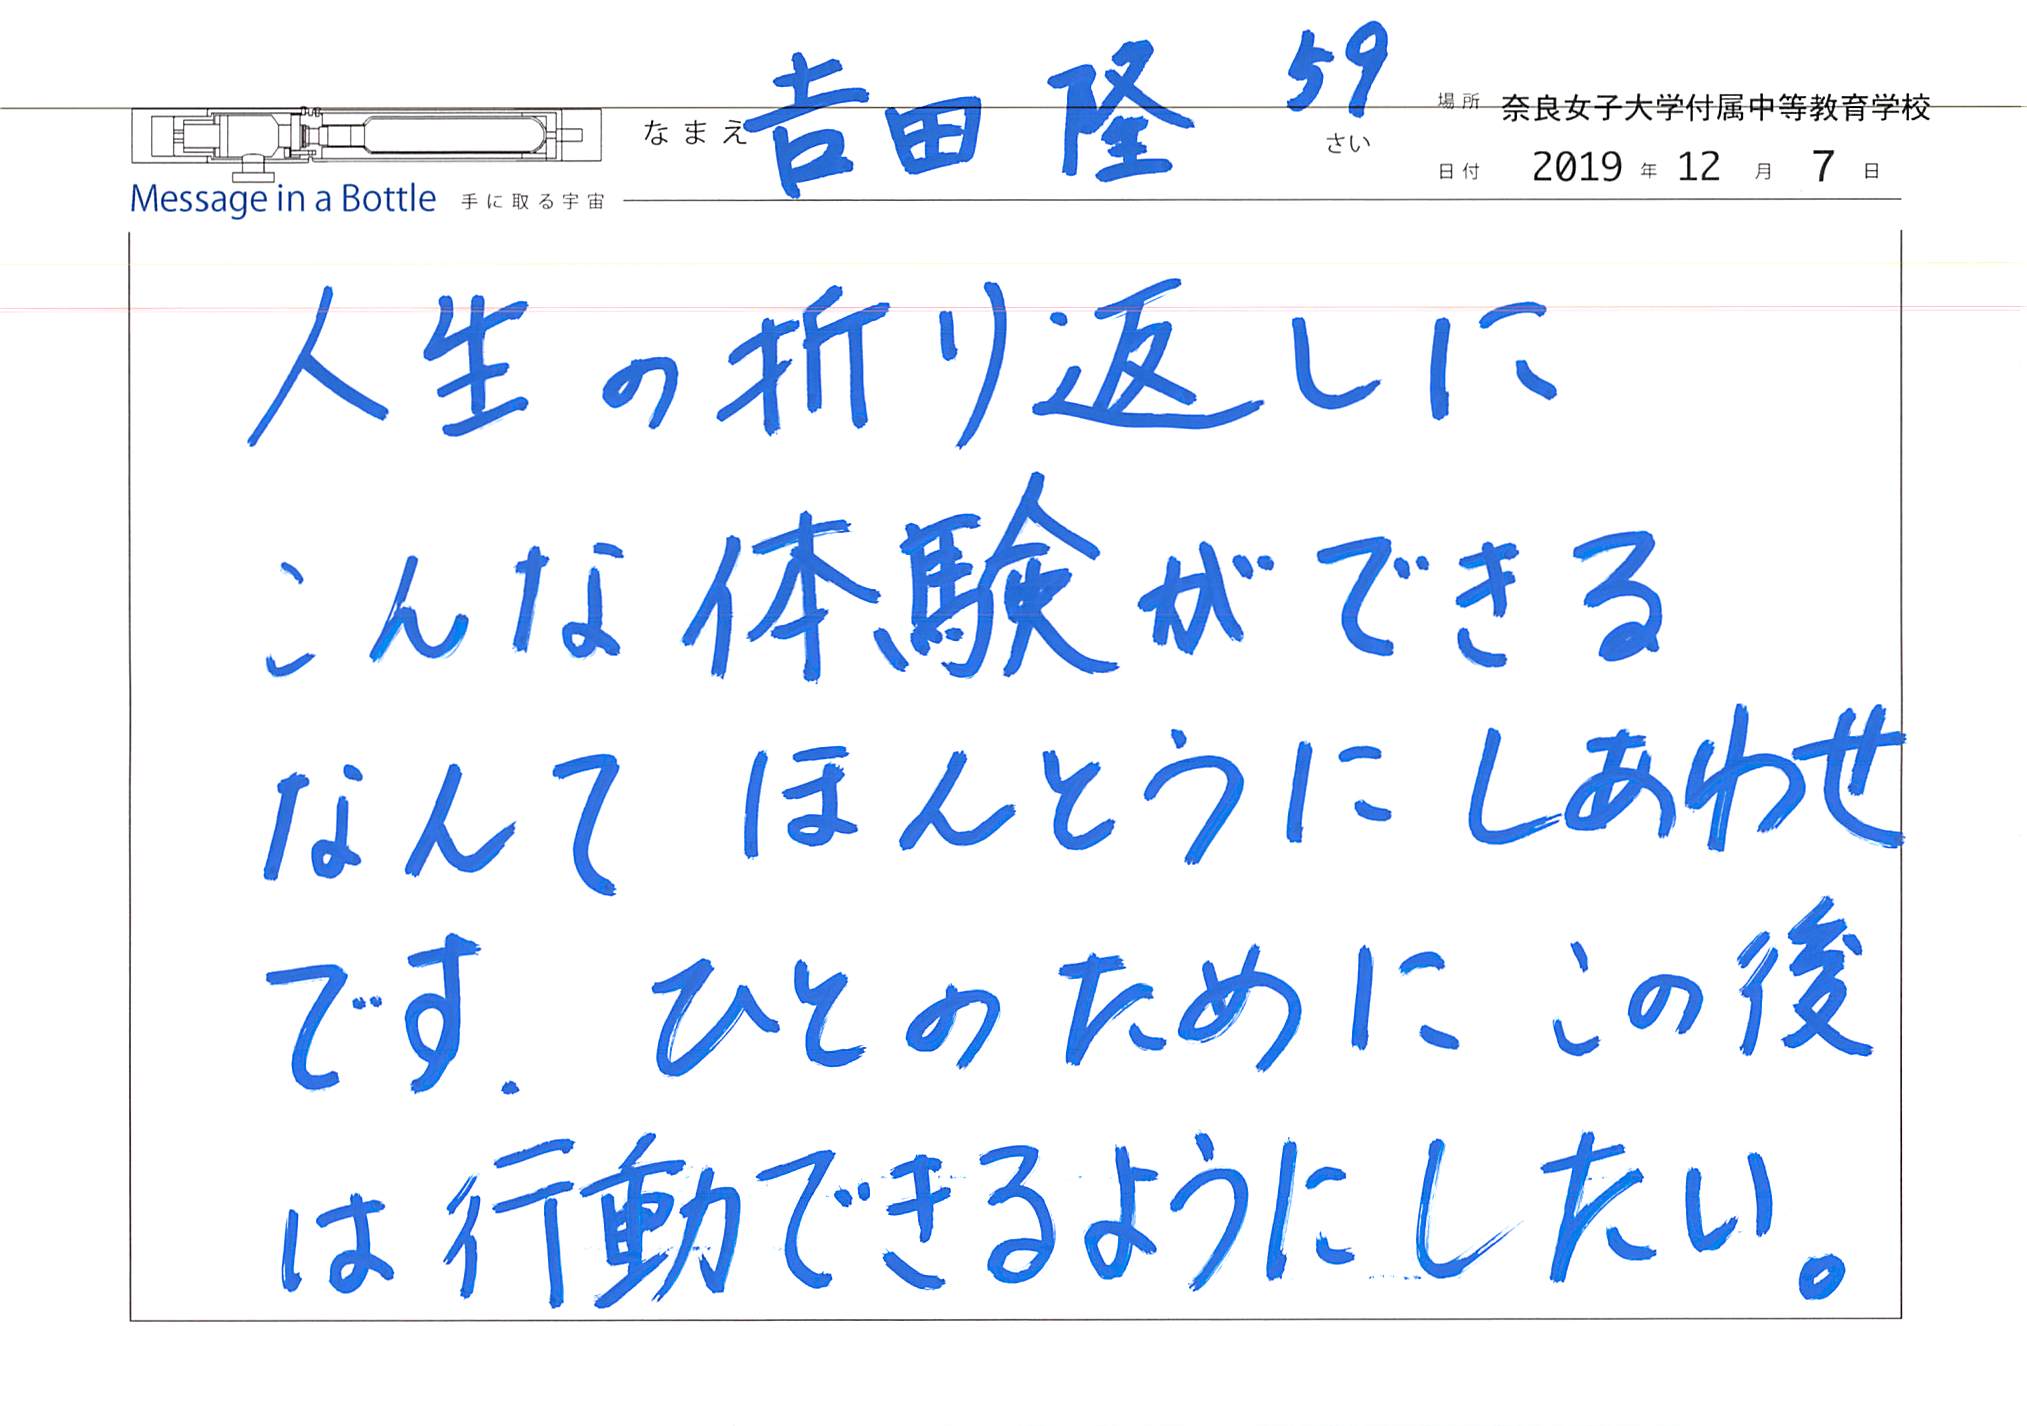 なまえ 吉田 隆 59 さい
場所 奈良女子大学付属中等教育学校
日付 2019 年 12 月 7 日
Message in a Bottle 手に取る宇宙
人生の折り返しに
こんな体験ができる
なんて ほんとうに しあわせ
です. ひとのために この後
は行動できるようにしたい。